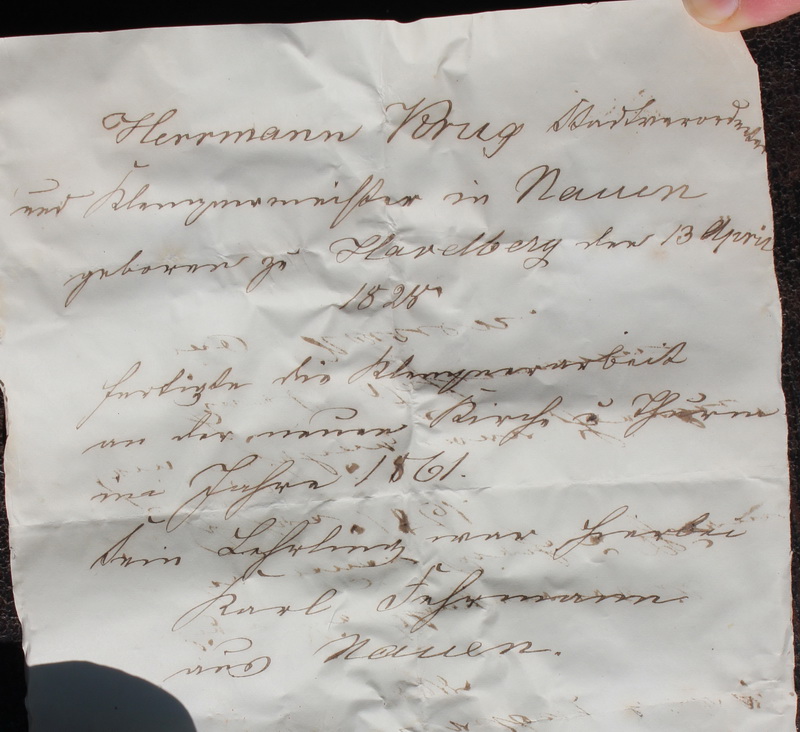 Herrmann Krug Stadtverordneter
und Klempnermeister in Nauen
geboren zu Havelberg den 13 April
1828
fertigte die Klempnerarbeit
an der neuen Kirche u Thurm
im Jahre 1861.
Sein Lehrling war hierbei
Karl Fehrmann
aus Nauen.